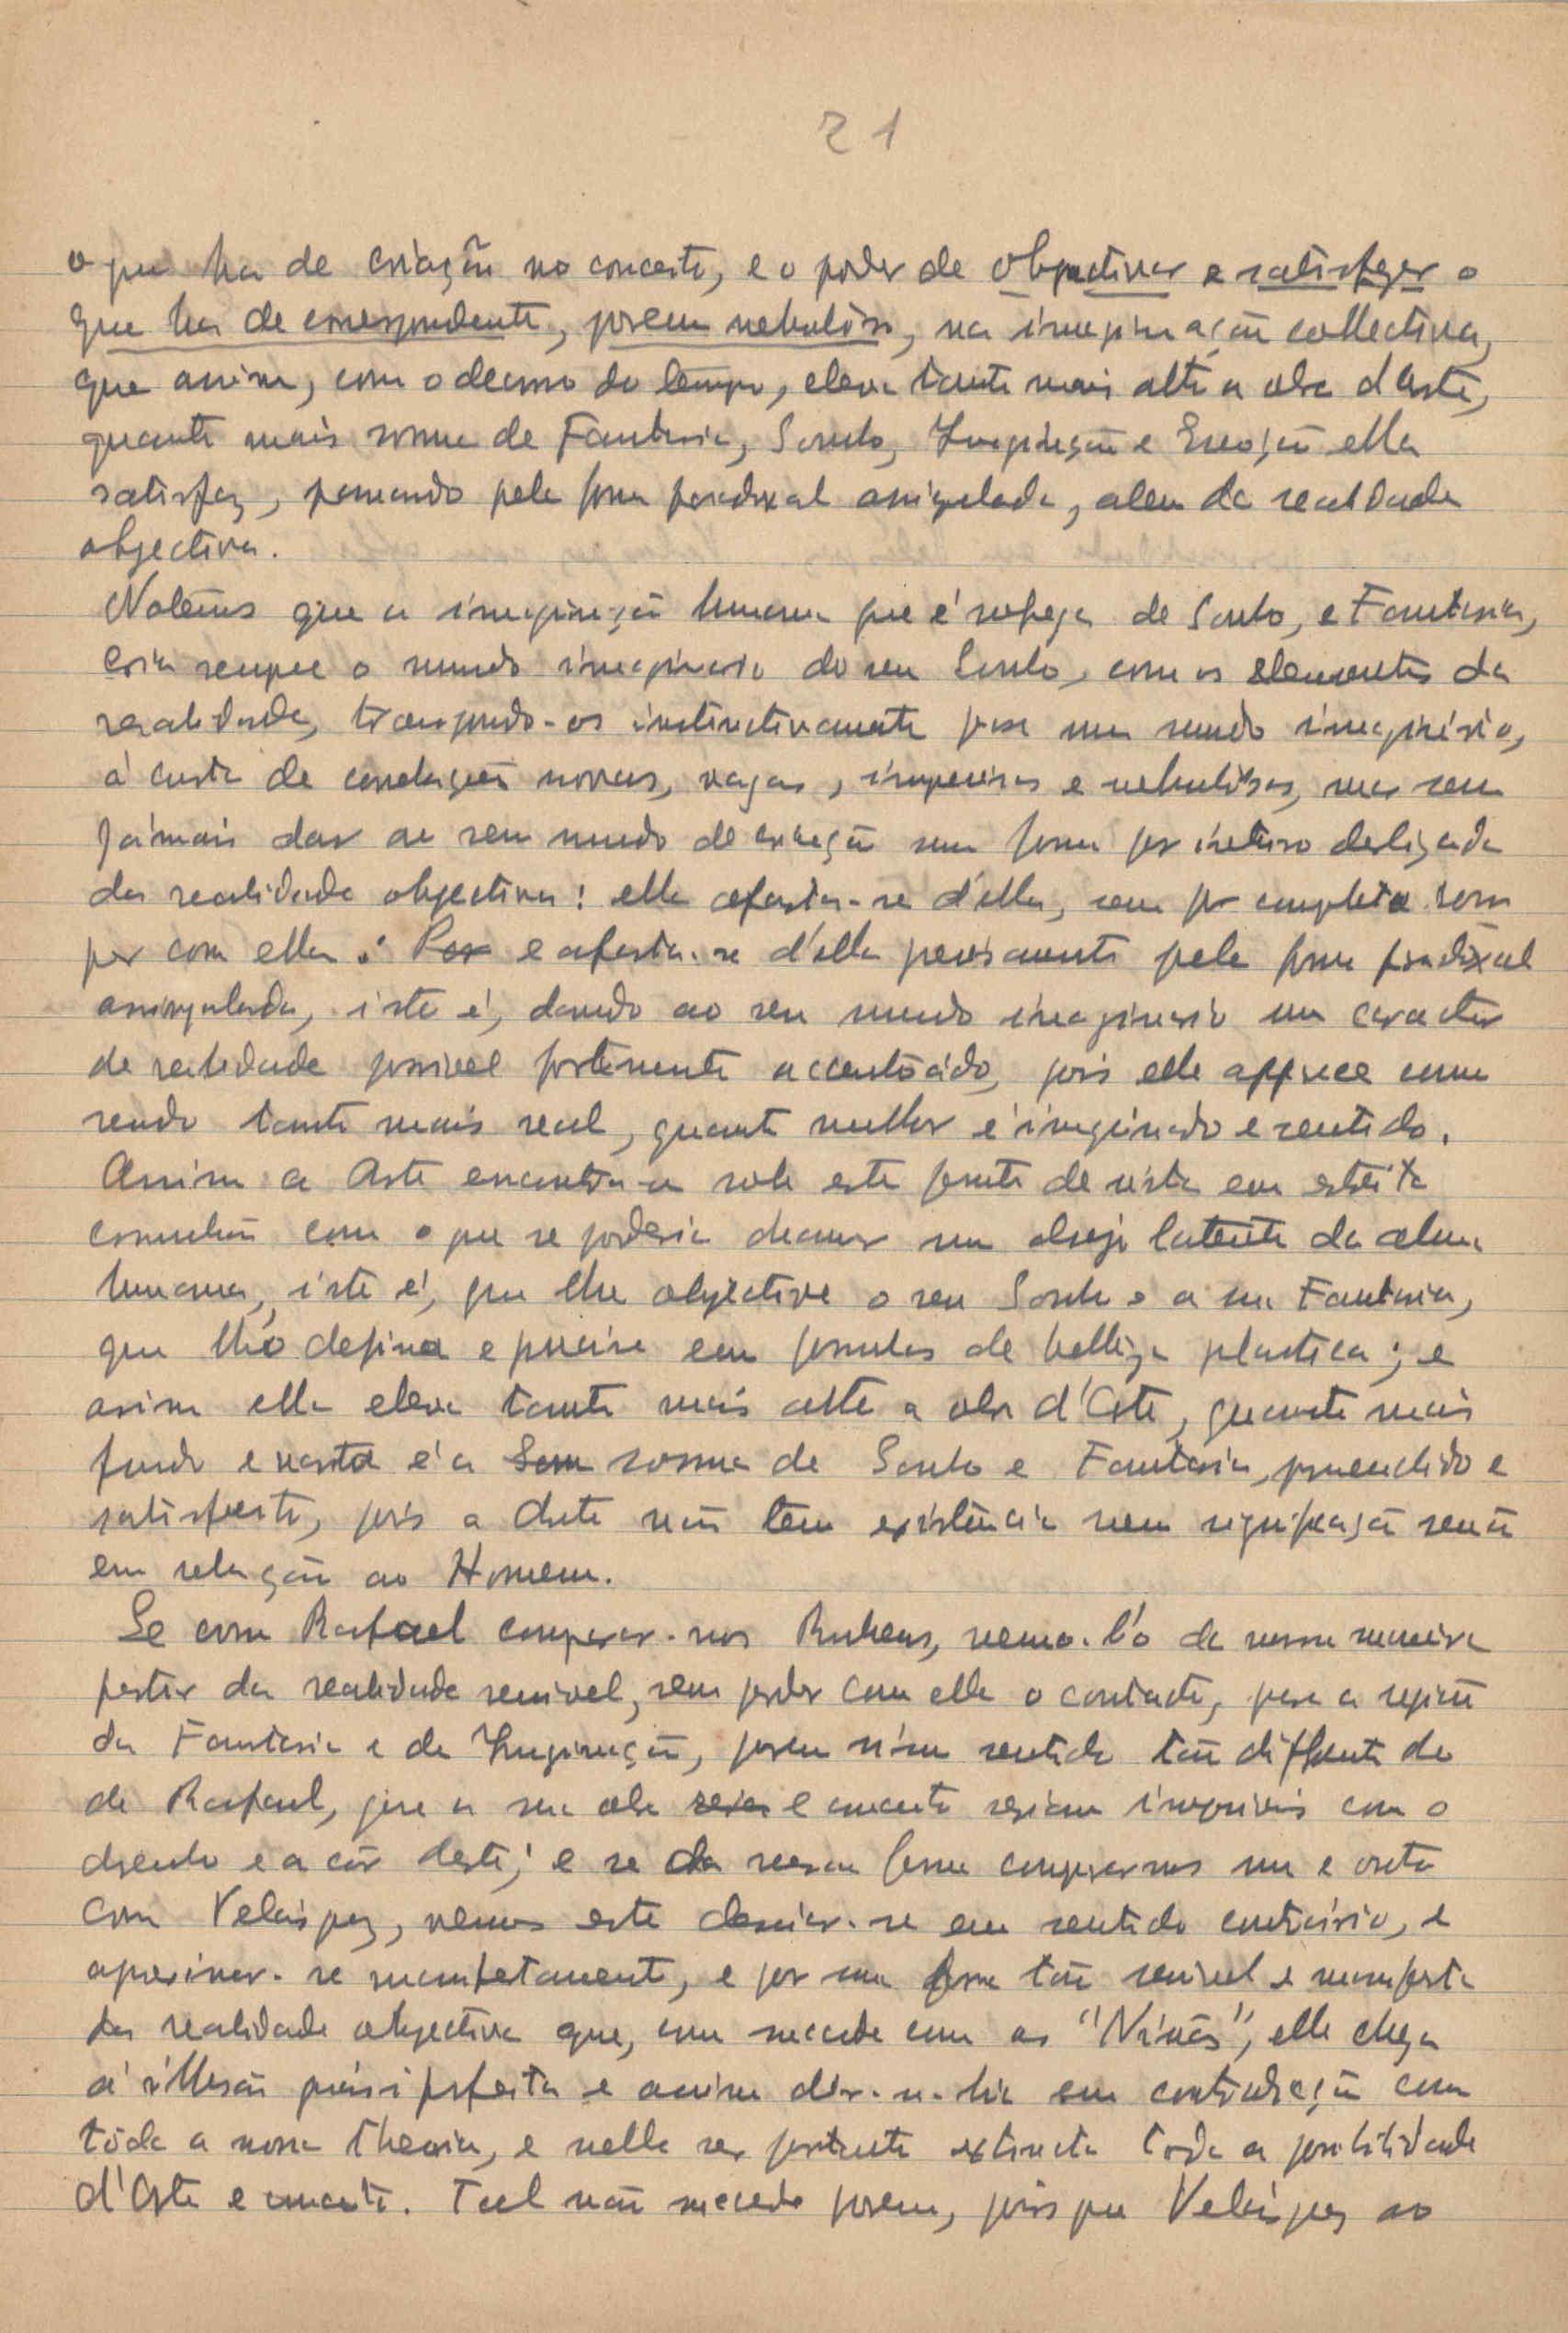 21
o que ha de criação no conceito, e o poder de objectivar e satisfazer o
que ha de correspondente, porem nebulôso, na imaginação collectiva,
que assim, com o decorrer do tempo, eleva tanto mais alto a obra d'Arte,
quanto mais somma de Fantasia, Sonho, Imaginação e Emoção ella
satisfaz, pensando pela forma paradoxal assignalada, alem da realidade
objectiva.
Notêmos que a imaginação humana que é de Sonho, e Fantasia,
cria sempre o mundo imaginario do seu Sonho, com os elementos da
realidade, transpondo-os instinctivamente para um mundo imaginário,
á custa de correlações novas, vagas, imprecisas e nebulósas, mas sem
jámais dar ao seu mundo de creação uma forma por inteiro desligada
da realidade objectiva: ella afasta-se d'ella, sem por completo rom
per com ella: Por e afasta-se d'ella precisamente pela forma paradoxal
assignalada, isto é, dando ao seu mundo imaginario um caracter
de realidade possivel fortemente accentuádo, pois elle apparece como
sendo tanto mais real, quanto melhor é imaginado e sentido.
Assim a Arte encontra-se sob este ponto de vista em estreita
comunhão com o que se poderia chamar um desejo latente da alma
humana, isto é, que lhe objective o seu Sonho e a sua Fantasia,
que lh'o defina e precise em formulas de belleza plastica; e
assim ella eleva tanto mais alto a obra d'Arte, quanto mais
funda e vasta é a Som somma de Sonho e Fantasia, prehenchido e
satisfeito, pois a Arte não tem existência nem significação senão
em relação ao Homem.
Se com Rafael comparar-mos Rubens, vemo-l'o da mesma maneira
partir da realidade sensivel, sem perder com ella o contacto, para a região
da Fantasia e da Imaginação, porem n'um sentido tão differente do
de Rafael, que a sua obra seria e encanto seriam impossiveis com o
desenho e a côr deste; e se da mesma forma compararmos um e outro
com Velásquez, vemos este desviar-se em sentido contrário, e
aproximar-se manifestamente, e por uma forma tão sensivel e manifesta
da realidade objectiva que, como succede com as "Ninãs", elle chega
á illusão quási perfeita e assim dir-se-hia em contradicção com
tôda a nossa theoria, e nella ser portanto extincta toda a possibilidade
d'Arte e encanto. Tal não succede porem, pois que Velásquez ao